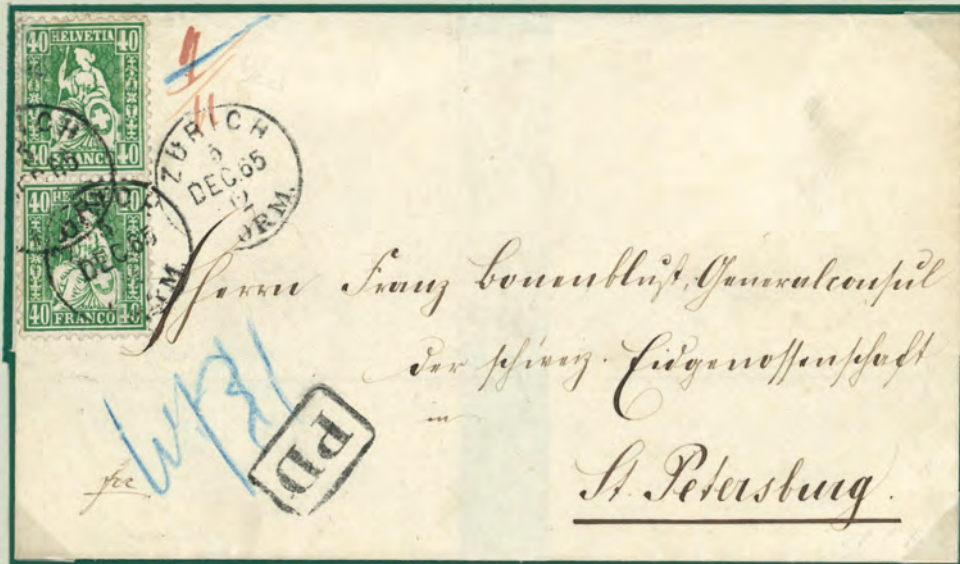 40 HELVETIA 40
40 FRANCO 40
40 HELVETIA 40
40 FRANCO 40
ZÜRICH
5
DEC. 65
12
VORM.
DEC. 65
Herrn Franz Bonenblust, Generalconsul
der schweiz. Eidgenossenschaft
in
St. Petersburg.
PD